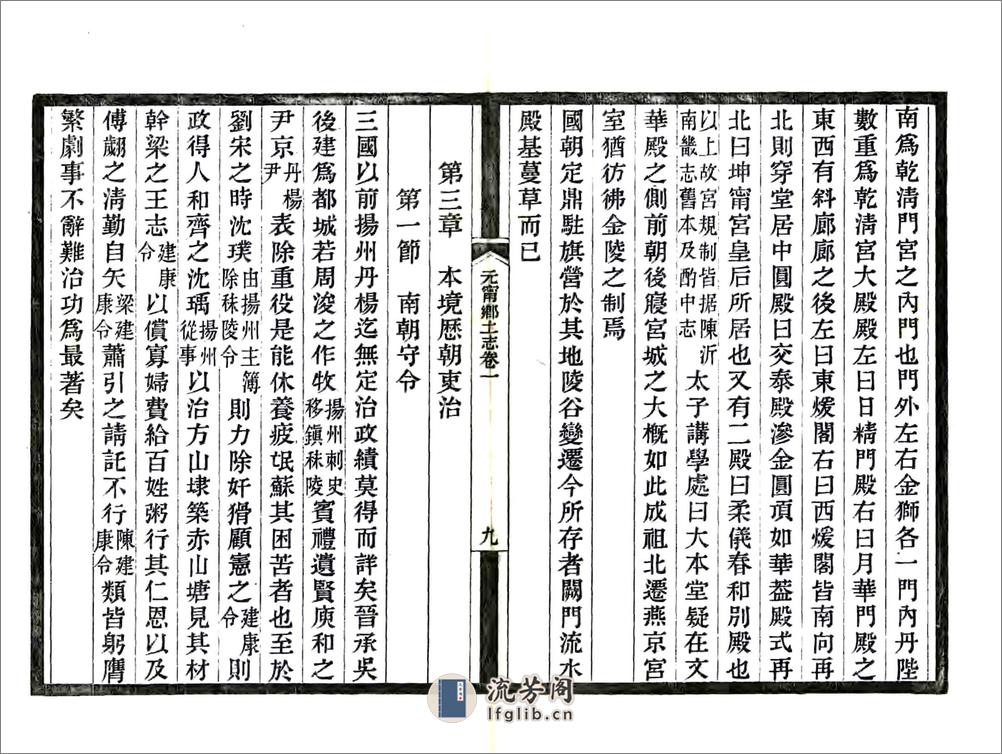 南爲乾淸門宮之內門也門外左右金獅各一門內丹陛
數重爲乾淸宮大殿殿左曰日精門殿右曰月華門殿之
東西有斜廊廊之後左曰東煖閣右曰西煖閣皆南向再
北則穿堂居中圓殿曰交泰殿滲金圓頂如華葢殿式再
北曰坤甯宮皇后所居也又有二殿曰柔儀春和別殿也
以上故宮規制皆据陳沂南畿志舊本及酌中志太子講學處曰大本堂疑在文
華殿之側前朝後寢宮城之大槪如此成祖北遷燕京宮
室猶彷彿金陵之制焉
國朝定鼎駐旗營於其地陵谷變遷今所存者闕門流水
殿基蔓草而已
元甯鄉土志卷一
九
第三章 本境歷朝吏治
第一節 南朝守令
三國以前揚州丹楊迄無定治政績莫得而詳矣晉承吳
後建爲都城若周浚之作牧揚州刺史移鎭秣陵賓禮遺賢庾和之
尹京丹楊尹表除重役是能休養疲氓蘇其困苦者也至於
劉宋之時沈璞由揚州主簿除秣陵令則力除奸猾顧憲之建康令則
政得人和齊之沈瑀揚州從事以治方山埭築赤山塘見其材
幹梁之王志建康令以償寡婦費給百姓粥行其仁恩以及
傅翽之淸勤自矢梁建康令蕭引之請託不行陳建康令類皆躬膺
繁劇事不辭難治功爲最著矣
流芳阁
lfglib.cn